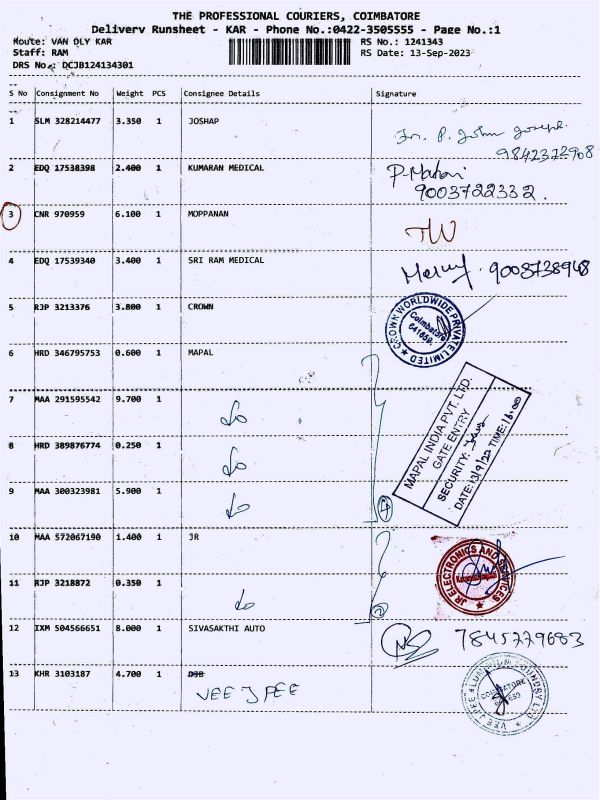 THE PROFESSIONAL COURIERS, COIMBATORE
Delivery Runsheet - KAR - Phone No.:0422-3505555 - Page No.:1
Route: VAN DLY KAR RS No.: 1241343
Staff: RAM RS Date: 13-Sep-2023
DRS No.: DCJB124134301
S No Consignment No Weight PCS Consignee Details Signature
1 SLM 328214477 3.350 1 JOSHAP
9842372908
2 EDQ 17538398 2.400 1 KUMARAN MEDICAL
9003722332.
3 CNR 970959 6.100 1 MOPPANAN
4 EDQ 17539340 3.400 1 SRI RAM MEDICAL 9008738948
5 RJP 3213376 3.800 1 CROWN
CROWN WORLDWIDE PRIVATE LIMITED
Coimbatore
6 HRD 346795753 0.600 1 MAPAL
7 MAA 291595542 9.700 1
do
MAPAL INDIA PVT. LTD.
GATE ENTRY
SECURITY:
DATE: TIME: 16:00
8 HRD 389876774 0.250 1
do
9 MAA 300323981 5.900 1
do
4
10 MAA 572067190 1.400 1 JR
JR ELECTRONICS AND SERVICES
11 RJP 3218872 0.350 1
do
2
12 IXM 504566651 8.000 1 SIVASAKTHI AUTO 7845779683
13 KHR 3103187 4.700 1
VEE J PEE
VEE JPEE ALUMINIUM FOUNDRY LTD
COIMBATORE